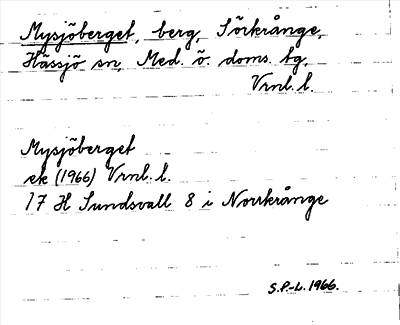 Mysjöberget, berg, Sörkrånge,
Hässjö sn, Med. ö. doms. tg,
Vrnl. l.
Mysjöberget
ek (1966) Vrnl. l.
17 H Sundsvall 8 i Norrkrånge
S.P-L. 1966.